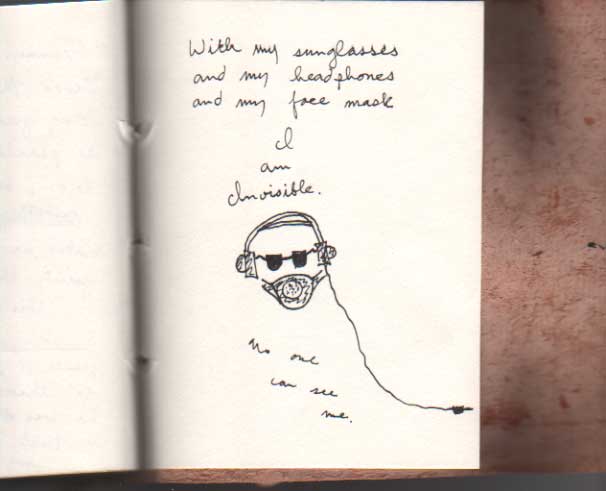 With my sunglasses
and my headphones
and my face mask
I
am
Invisible.
No one
can see
me.